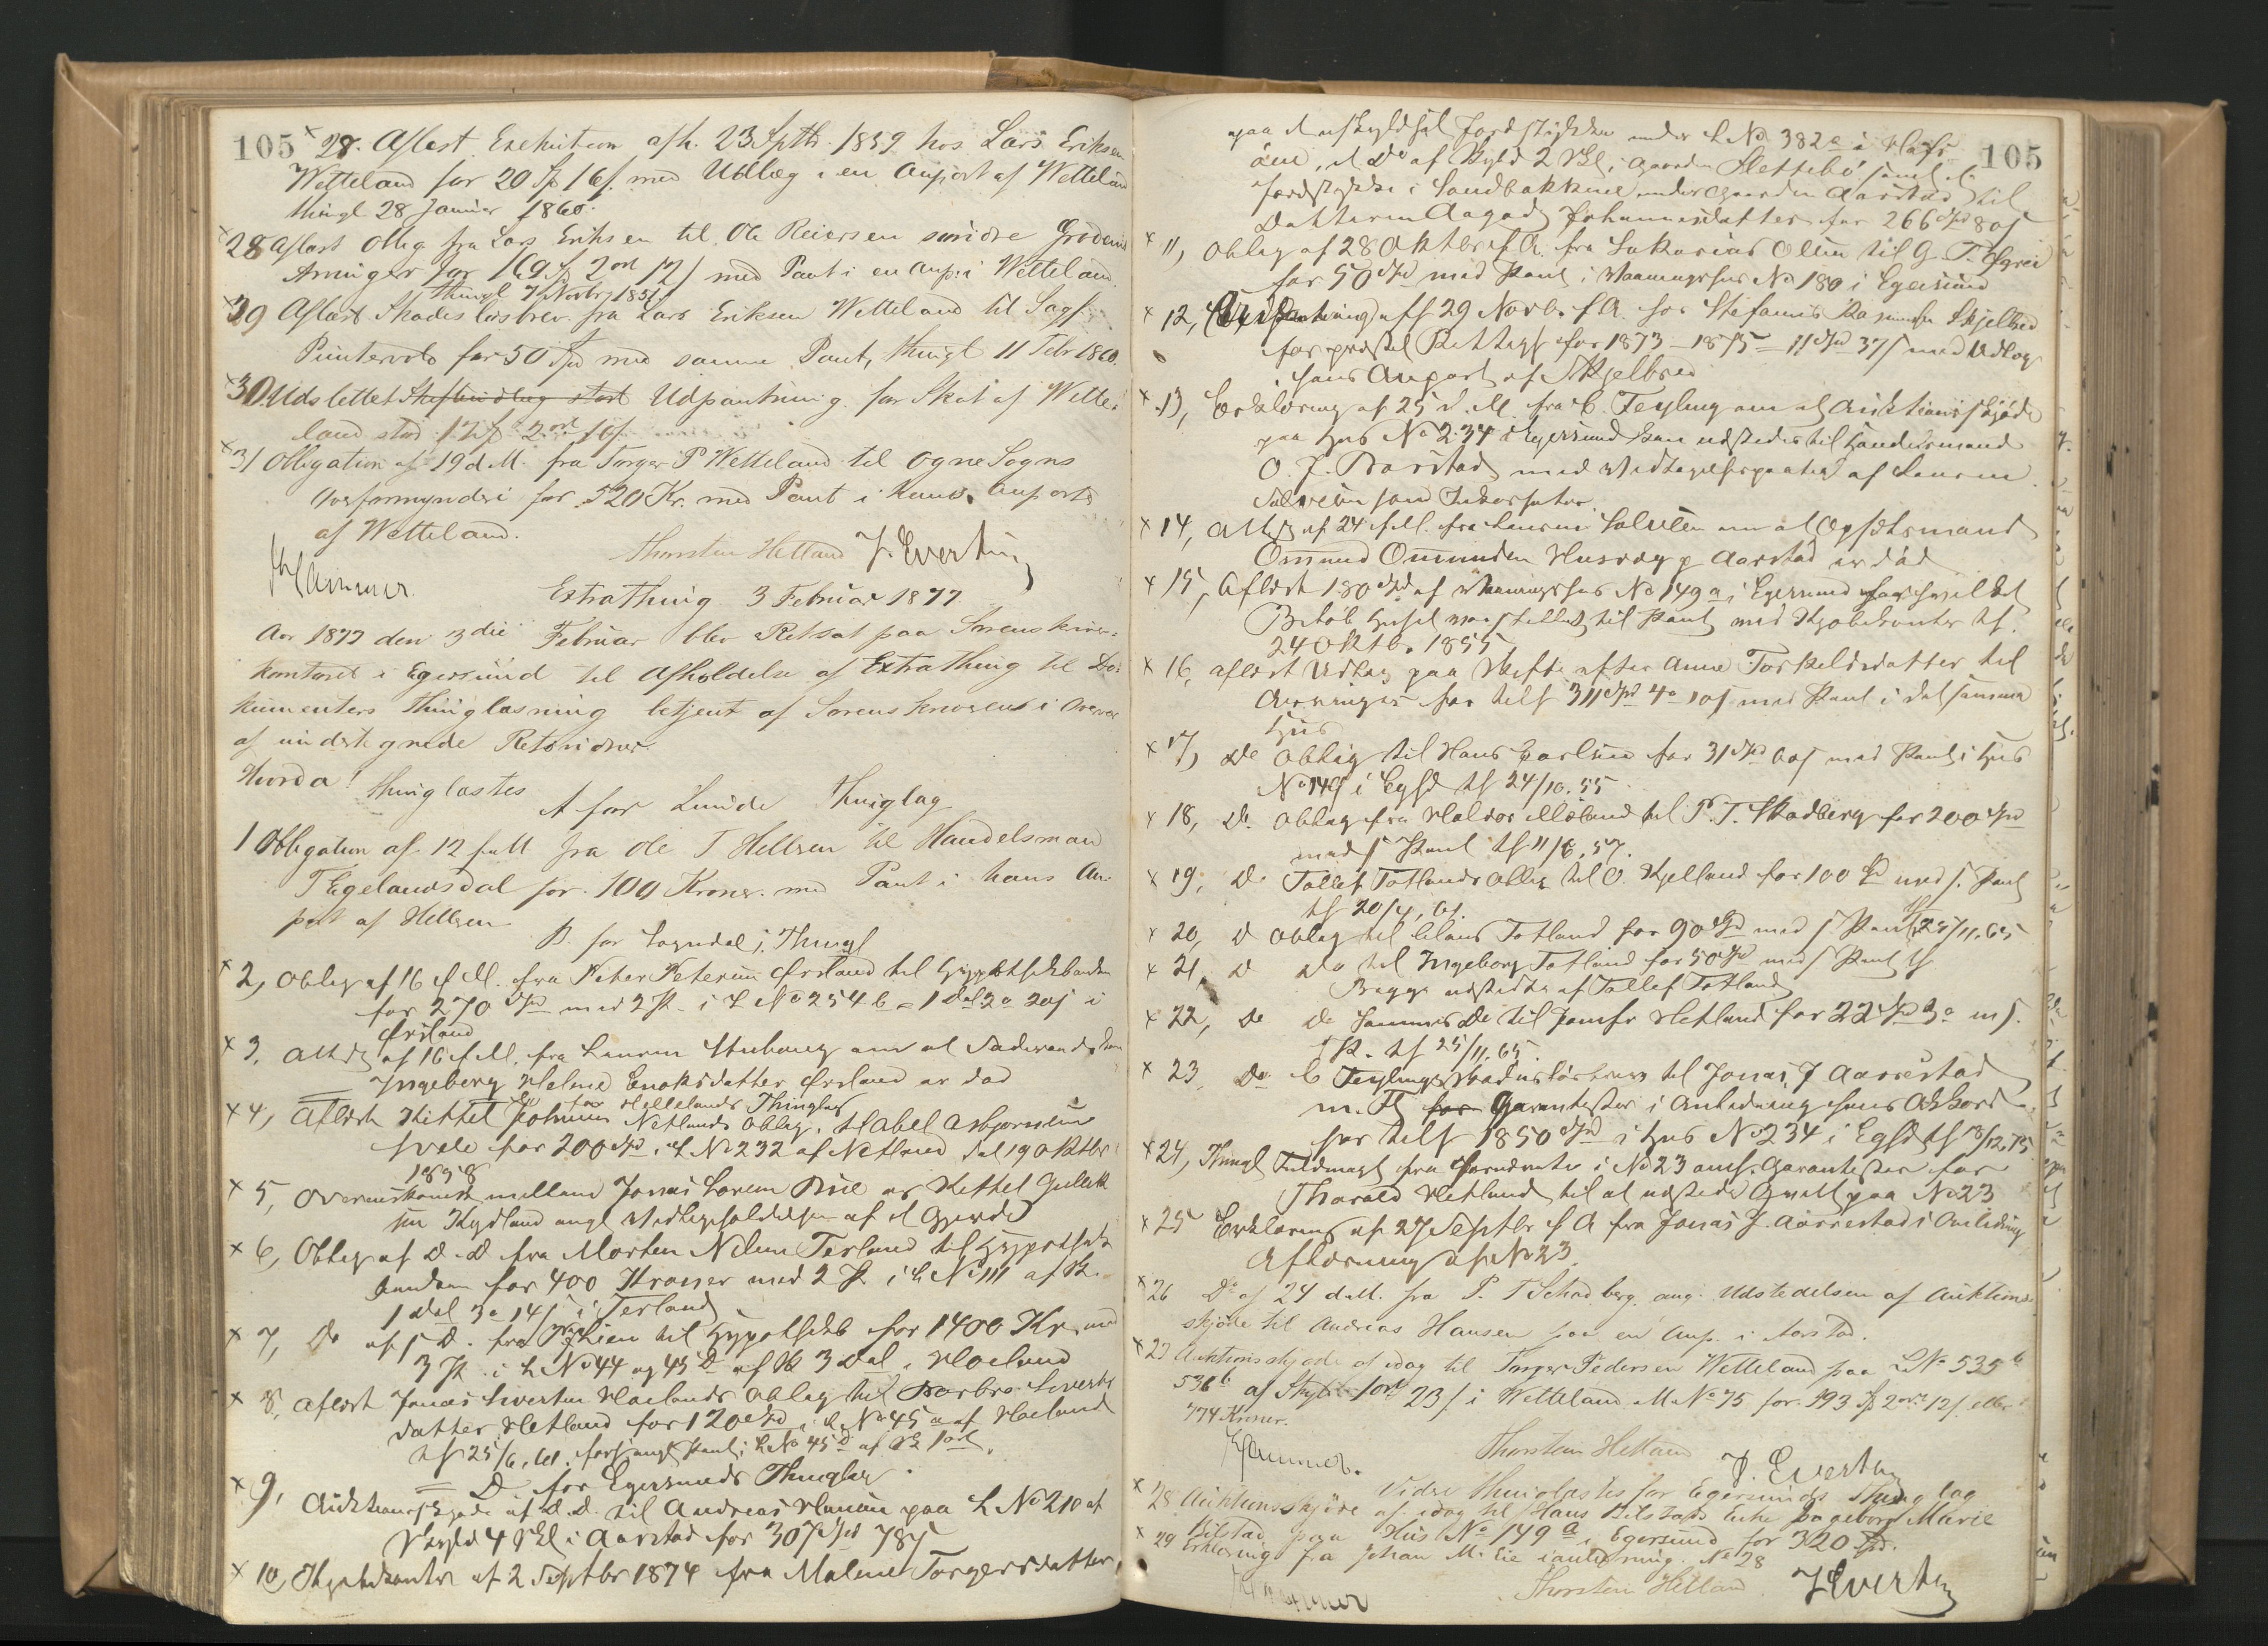 105
28. Aflæst Exekution afh. 23 Septb. 1859 hos Lars Eriksen
Wetteland for 20 Sp 16 s. med Udlæg i en Anpart af Wetteland
thingl 28 Januar 1860.
28 Aflæst Oblig fra Lars Eriksen til Ole Reiersen
Arvinger for 169 Sp 2 ort 12 s med Pant i en Anp. i Wetteland.
thingl 7 Novbr 1857
29 Aflæst Skadesløsbrev fra Lars Eriksen Wetteland til Sagf.
Puntervold for 50 Spd med samme Pant, thingl 11 Febr 1860.
30. Udslettet Udpantning for Skat af Wette-
land stor 2 ort
31 Obligation af 19 d. M. fra Torger P Wetteland til Ogne Sogns
Overformynderi for 520 Kr. med Pant i hans Anparts
af Wetteland.
Thorsten Hetland J. Evertsen
Hammer.
Extrathing 3 Februar 1877.
Aar 1877 den 3die Februar blev Retsat paa Sorenskriver-
kontoret i Egersund til Afholdelse af Extrathing til Do-
kumenters thinglæsning betjent af Sorenskriveren i Overvær
af undertegnede Retsvidner.
Hvorda! thinglæstes
A for Lunde Thinglag
1 Obligation af 12 f M fra Ole T Hellren til Handelsmand
T Egelandsdal for 100 Kroner med Pant i hans An-
part af Hellren
B. for Sogndals Thingl
2, Oblig af 16 f. M. fra Peter Petersen Ørsland til Hypothekbanken
for 270 Spd med 2 Pr. i L No 254 b = 1 Dal 2 o 20 s i
Ørsland
3. Attest af 16 f. M. fra Lensm Stuhaug om at Føderaadskone
Ingeborg Malene Enoksdatter Ørsland er død
C for Hellelands Thinglag
4, Aflæst Kittel Netlands Oblig. til Abel Asbjørnsen
Svele for 200 Spd. i L No 232 af Netland dat 19 Oktbr
1858
5, Overenskomst mellem Jonas Larsen Rue og Kittel Gullik
sen Kydland angl Vedligeholdelsen af et Gjerde
6, Oblig af D. D. fra Morten Nilsen Terland til Hypothek
banken for 400 Kroner med 2 Pr. i L No 111 af Sk.
1 Dal 3 o 14 s i Terland
7, Do af s D. fra Lien til Hypothekb for 1400 Kr. med
3 Pr. i L No 44 og 45 d af Sk 3 Dal. i Hæland
8, Aflæst Jonas Sivertsen Hælands Oblig til Barbro Siverts
datter Hetland for 120 Spd i L No 45 a af Hæland
tl 25/6. 61. forsaavidt Pant i L No 45 d af Sk 1 ort.
D. for Egersunds Thinglag
9, Auktionsskjøde af d. D. til Andreas Hansen paa L No 210 af
Skyld 4 Skl i Aarstad for 307 Spd 78 s
10, Kjøbekontr af 2 Septbr 1874 fra Malene Torgersdatter
105
paa et uskyldsat Jordstykke under L No 382 a i
øen, et Do af Skyld 2 Skl, i Gaarden Slettebø samt et
Jordstykke i Sandbakkene under Gaarden Aarstad til
Datteren Aagod Johannesdatter for 266 Spd 80 s
11, Oblig af 28 Oktbr f. A. fra Sakarias Olsen til G. T.
for 50 Spd med Pant i Vaaningshus No 180 i Egersund
12, afh 29 Novb. f. A. hos Stefanus Rasmussen Skjelbred
for 1873 - 1875 = 11 Spd 37 s med Udlæg
i hans Anpart af Skjelbred
13, Erklæring af 25 d. M. fra C. Feyling om at Auktionsskjøde
paa Hus No 234 i Egersund kan udstedes til Handelsmand
O. J. Barstad med Vedtagelsespaategn af Lensm.
Salvesen som Inkassator.
14, Attest af 24 f. M. fra Lensm Salvesen om at Opsidsmand
Ommund Ommundsen Husvæg p Aarstad er død
15, Aflæst 180 Spd af Vaaningshus No 149 a, i Egersund
Beløb Huset var stillet til Pant med Kjøbekontr tl.
24 Oktb. 1855
16, aflæst Udlæg paa Skifte efter Anne Torkeldsdatter til
Arvinger for tils 311 Spd 4 o 10 s med Pant i det samme
Hus
17, Do Oblig til Hans Carlsen for 31 Spd 60 s med Pant i Hus
No 149 i Egsd tl 24/10. 55
18, Do. Oblig fra Halvor Mæland til P. T. Skadberg for 200 Spd
med s Pant tl 11/6. 57.
19, Do Tollef Totlands Oblig til O. Kjelland for 100 Spd med s. Pant
tl 20/4. 61.
20, D Oblig til Claus Totland for 90 Spd med s Pant tl 25/11. 65
21, D Do til Ingeborg Totland for 50 Spd med s Pant tl
Begge udstedte af Tollef Totland
22, Do Do Sammes Do til Jomfr Hetland for 22 Spd 3 o m s.
Pt. tl 25/11. 65.
23 Do C Feylings Skadesløsbrev til Jonas J Aarrestad
m. Fl Garantister i Anledning hans Akkord
for tils 1850 Spd i Hus No 234 i Egsd tl 18/12. 75
24, Thingl Fuldmagt fra i No 23 omh. Garantister for
Tharald Hetland til at udstede Qvitt paa No 23
25 Erklæring af 27 Septbr f A fra Jonas J. Aarrestad i Anledning
Aflæsning af No 23.
26 Do af 24 d. M. fra P. T Schadberg ang. Udstedelsen af Auktions
skjøde til Andreas Hansen paa en Anp. i Aarstad.
27 Auktionsskjøde af idag til Torger Pedersen Wetteland paa L No 535 b
536 b af Skyld 1 ort 23 s i Wetteland M No 75 for 193 Sp 2 ort 12 s eller
774 Kroner.
Hammer. Thorsten Hetland J. Evertsen
Vidre thinglæstes for Egersunds Thinglag
28 Auktionsskjøde af idag til Hans Bilstads Enke Ingeborg Marie
Bilstad paa Hus No 149 a i Egersund for 320 Spd.
29 Erklæring fra Johan M. Eie i anledning No 28
Hammer Thorsten Hetland J Evertsen